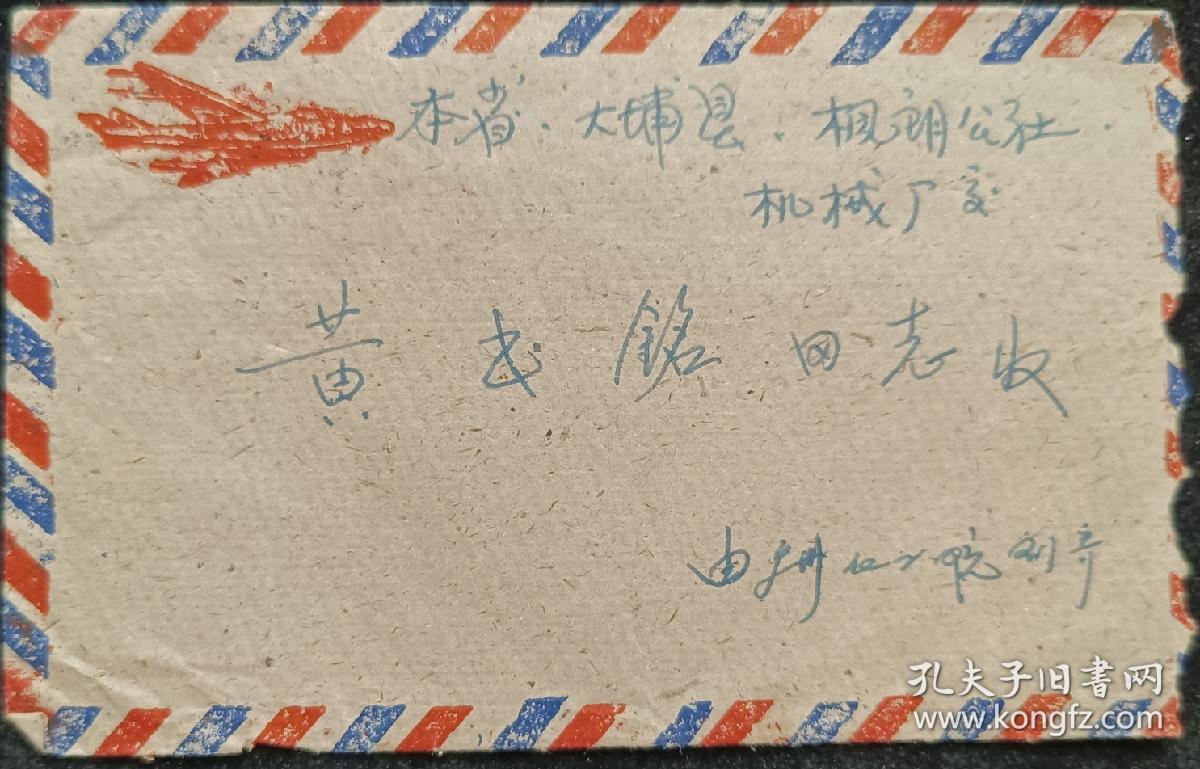 本省.大埔县.枫朗公社.
机械厂交
黄武銘同志收
由 院刘寄
孔夫子旧書网
www.kongfz.com